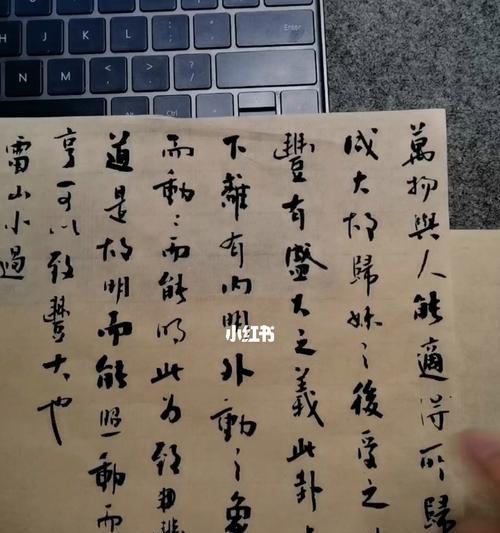 萬物與人能適得所歸
成大故歸妹之後受之
豐有盛大之義此卦
下離有內明外動之象
而動〻而能明此为致豐
道是故明而能照動而
亨可以致豐大也
雷山小過
小红书
N
M